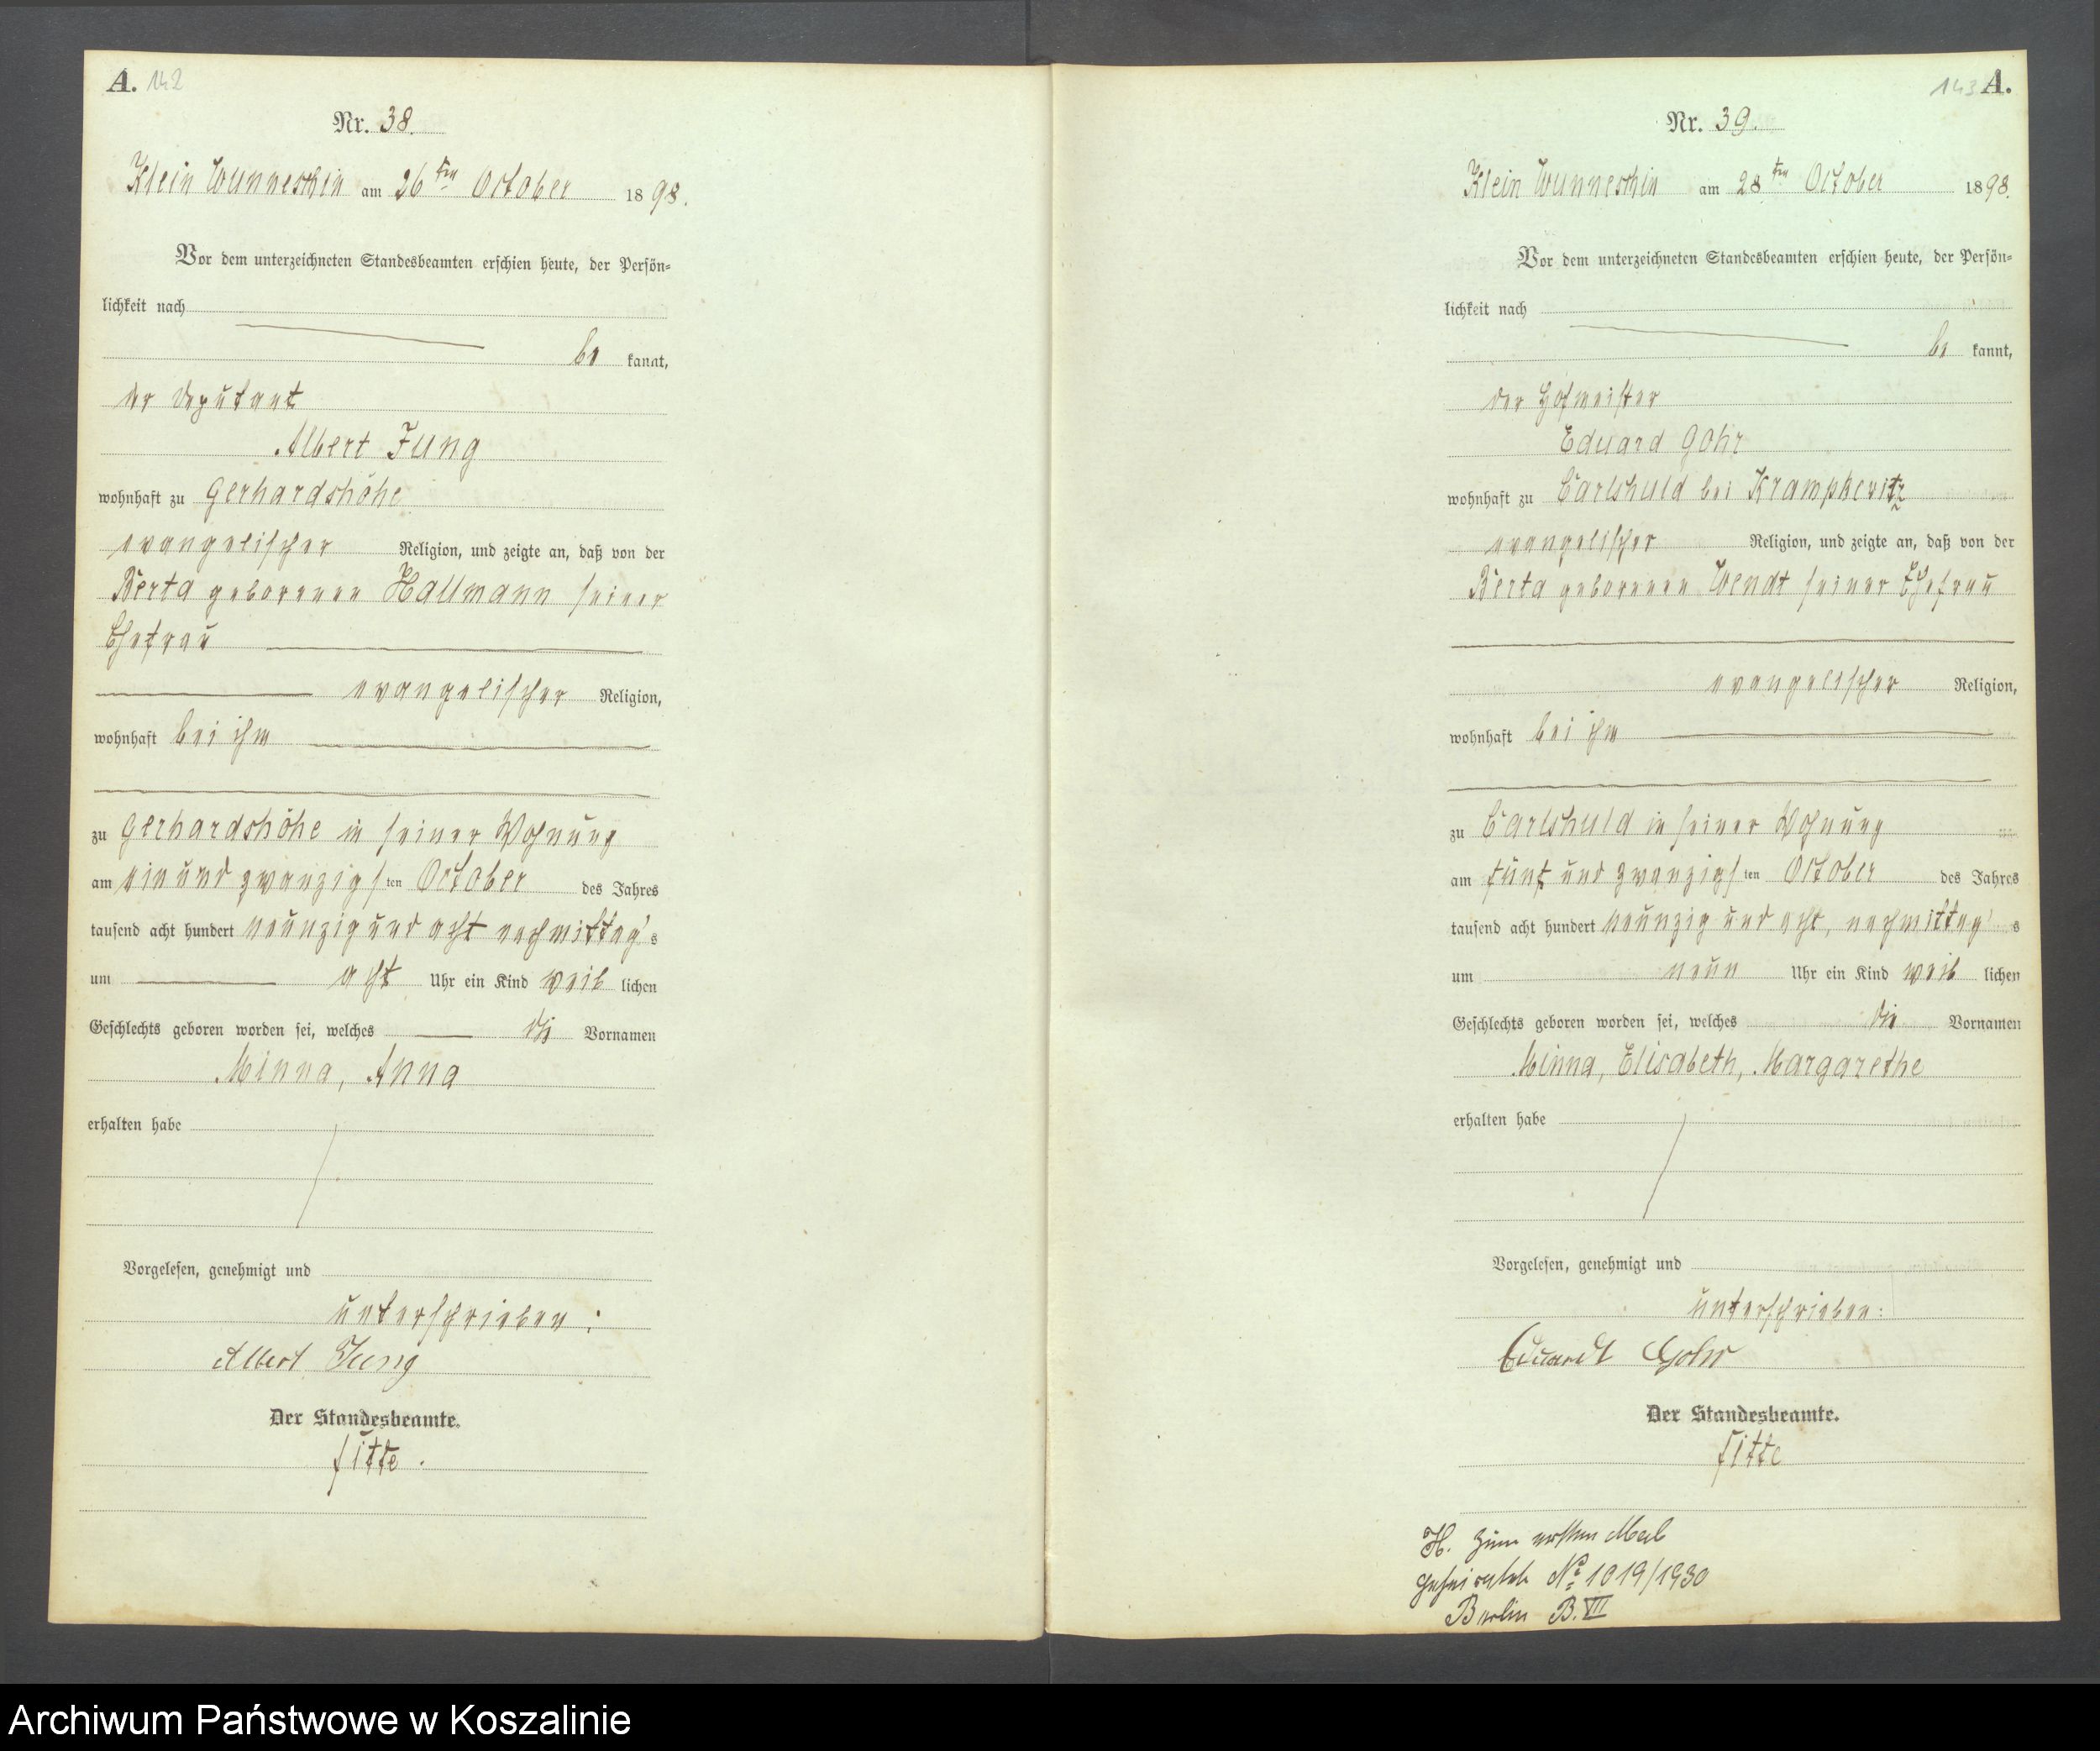 A. 142
Nr. 38.
Klein Wunneschin am 26ten October 1898.
Vor dem unterzeichneten Standesbeamten erschien heute, der Persön-
lichkeit nach
be kannt,
der Deputant
Albert Jung
wohnhaft zu Gerhardshöhe
evangelischer Religion, und zeigte an, daß von der
Berta geborenen Hallmann seiner
Ehefrau
evangelischer Religion,
wohnhaft bei ihm
zu Gerhardshöhe in seiner Wohnung
am ein und zwanzigsten October des Jahres
tausend acht hundert neunzig und acht nachmittags
um acht Uhr ein Kind weiblichen
Geschlechts geboren worden sei, welches die Vornamen
Minna, Anna
erhalten habe
Vorgelesen, genehmigt und
unterschrieben:
Albert Jung
Der Standesbeamte.
Fitte.
143 A.
Nr. 39.
Klein Wunneschin am 28ten October 1898.
Vor dem unterzeichneten Standesbeamten erschien heute, der Persön-
lichkeit nach
be kannt,
der Hofmeister
Eduard Gohr
wohnhaft zu Carlshuld bei Krampkewitz
evangelischer Religion, und zeigte an, daß von der
Berta geborenen Wendt seiner Ehefrau
evangelischer Religion,
wohnhaft bei ihm
zu Carlshuld in seiner Wohnung
am fünf und zwanzigsten October des Jahres
tausend acht hundert neunzig und acht, nachmittags
um neun Uhr ein Kind weiblichen
Geschlechts geboren worden sei, welches die Vornamen
Minna, Elisabeth, Margarethe
erhalten habe
Vorgelesen, genehmigt und
unterschrieben:
Eduardt Gohr
Der Standesbeamte.
Fitte
H. zum ersten Mal
geheiratet No 1019/1930
Berlin B. VIII
Archiwum Państwowe w Koszalinie